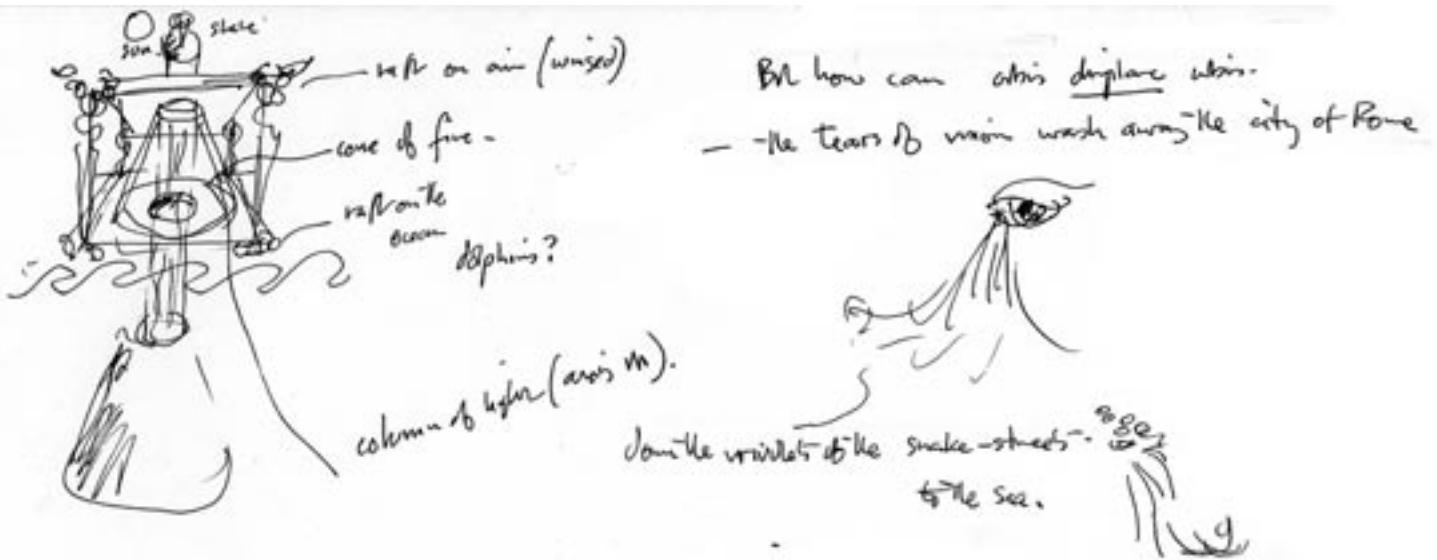 sun
raft on air (winged)
cone of fire -
raft on the
ocean
dolphins?
column of light (axis m).
But how can this displace this.
- the tears of vision wash away the city of Rome
down the of the snake-streets -
to the sea.